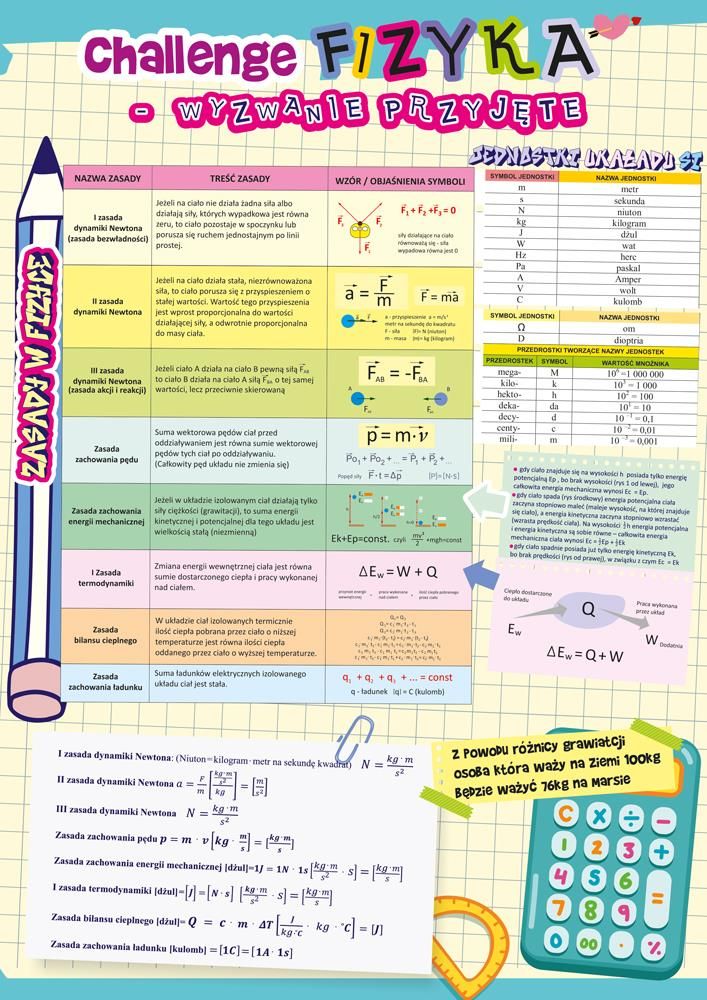 Challenge FIZYKA
- WYZWANIE PRZYJĘTE
ZASADY W FIZYCE
NAZWA ZASADY
TREŚĆ ZASADY
WZÓR / OBJAŚNIENIA SYMBOLI
I zasada
dynamiki Newtona
(zasada bezwładności)
Jeżeli na ciało nie działa żadna siła albo
działają siły, których wypadkowa jest równa
zeru, to ciało pozostaje w spoczynku lub
porusza się ruchem jednostajnym po linii
prostej.
F₁ + F₂ +F₃ = 0
siły działające na ciało
równoważą się - siła
wypadkowa równa jest 0
II zasada
dynamiki Newtona
Jeżeli na ciało działa stała, niezrównoważona
siła, to ciało porusza się z przyspieszeniem o
stałej wartości. Wartość tego przyspieszenia
jest wprost proporcjonalna do wartości
działającej siły, a odwrotnie proporcjonalna
do masy ciała.
a = F/m
F = ma
a - przyspieszenie a = m/s²
metr na sekundę do kwadratu
F - siła |F|= N (niuton)
m - masa |m|= kg (kilogram)
III zasada
dynamiki Newtona
(zasada akcji i reakcji)
Jeżeli ciało A działa na ciało B pewną siłą F_AB
to ciało B działa na ciało A siłą F_BA o tej samej
wartości, lecz przeciwnie skierowaną
F_AB = -F_BA
A B
Zasada
zachowania pędu
Suma wektorowa pędów ciał przed
oddziaływaniem jest równa sumie wektorowej
pędów tych ciał po oddziaływaniu.
(Całkowity pęd układu nie zmienia się)
p = m·v
Po₁ + Po₂ + ... = P₁ + P₂ + ...
Popęd siły F · t = Δp |P|=[N·S]
Zasada zachowania
energii mechanicznej
Jeżeli w układzie izolowanym ciał działają tylko
siły ciężkości (grawitacji), to suma energii
kinetycznej i potencjalnej dla tego układu jest
wielkością stałą (niezmienną)
Ek+Ep=const. czyli mv²/2 +mgh=const
I Zasada
termodynamiki
Zmiana energii wewnętrznej ciała jest równa
sumie dostarczonego ciepła i pracy wykonanej
nad ciałem.
ΔEw = W + Q
Zasada
bilansu cieplnego
W układzie ciał izolowanych termicznie
ilość ciepła pobrana przez ciało o niższej
temperaturze jest równa ilości ciepła
oddanego przez ciało o wyższej temperaturze.
Zasada
zachowania ładunku
Suma ładunków elektrycznych izolowanego
układu ciał jest stała.
q₁ + q₂ + q₃ + ... = const
q - ładunek |q| = C (kulomb)
JEDNOSTKI UKAŁADU SI
SYMBOL JEDNOSTKI NAZWA JEDNOSTKI
m metr
s sekunda
N niuton
kg kilogram
J dżul
W wat
Hz herc
Pa paskal
A Amper
V wolt
C kulomb
SYMBOL JEDNOSTKI NAZWA JEDNOSTKI
Ω om
D dioptria
PRZEDROSTKI TWORZĄCE NAZWY JEDNOSTEK
PRZEDROSTEK SYMBOL WARTOŚĆ MNOŻNIKA
mega- M 10⁶ =1 000 000
kilo- k 10³ = 1 000
hekto- h 10² = 100
deka- da 10¹ = 10
decy- d 10⁻¹ = 0,1
centy- c 10⁻² = 0,01
mili- m 10⁻³ = 0,001
gdy ciało znajduje się na wysokości h posiada tylko energię
potencjalną Ep , bo brak wysokości (rys 1 od lewej), jego
całkowita energia mechaniczna wynosi Ec = Ep.
gdy ciało spada (rys środkowy) energia potencjalna ciała
zaczyna stopniowo maleć (maleje wysokość, na której znajduje
się ciało), a energia kinetyczna zaczyna stopniowo wzrastać
(wzrasta prędkość ciała). Na wysokości ½h energia potencjalna
i energia kinetyczna są sobie równe – całkowita energia
mechaniczna ciała wynosi Ec = ½Ep + ½Ek
gdy ciało spadnie posiada już tylko energię kinetyczną Ek,
bo brak prędkości (rys od prawej), w związku z czym Ec = Ek
Ciepło dostarczone
do układu
Praca wykonana
przez układ
Q
Ew
W
Dodatnia
ΔEw = Q + W
I zasada dynamiki Newtona: (Niuton=kilogram· metr na sekundę kwadrat) N = kg·m/s²
II zasada dynamiki Newtona a = F/m [kg·m/s² / kg] = [m/s²]
III zasada dynamiki Newtona N = kg·m/s²
Zasada zachowania pędu p = m · v [kg · m/s] = [kg·m/s]
Zasada zachowania energii mechanicznej |dżul|=1J = 1N · 1s [kg·m/s² · S] = [kg·m/s]
I zasada termodynamiki |dżul|=[J] = [N · s] [kg·m/s² · S] = [kg·m/s]
Zasada bilansu cieplnego |dżul|= Q = c · m · ΔT [J/kg·°C · kg · °C] = [J]
Zasada zachowania ładunku |kulomb| = [1C] = [1A · 1s]
Z POWODU RÓŻNICY GRAWIATCJI
OSOBA KTÓRA WAŻY NA ZIEMI 100KG
BĘDZIE WAŻYĆ 76KG NA MARSIE
C X ÷ −
1 2 3 +
4 5 6
7 8 9 =
0 00 · %